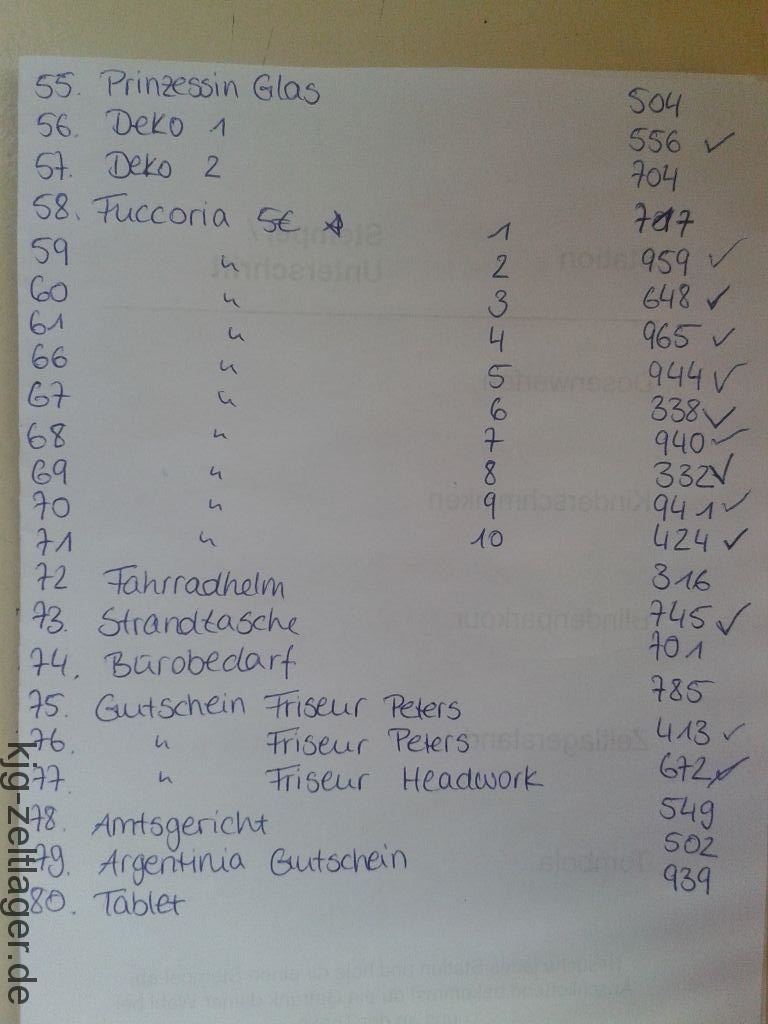 55. Prinzessin Glas 504
56. Deko 1 556 ✓
57. Deko 2 704
58. Fuccoria 5€ 1 717
59 " 2 959 ✓
60 " 3 648 ✓
61 " 4 965 ✓
66 " 5 944 ✓
67 " 6 338 ✓
68 " 7 940 ✓
69 " 8 332 ✓
70 " 9 941 ✓
71 " 10 424 ✓
72 Fahrradhelm 316
73. Strandtasche 745 ✓
74. Bürobedarf 701
75. Gutschein Friseur Peters 785
76. " Friseur Peters 413 ✓
77. " Friseur Headwork 672 ✓
78. Amtsgericht 549
79. Argentinia Gutschein 502
80. Tablet 939
kjg-zeltlager.de